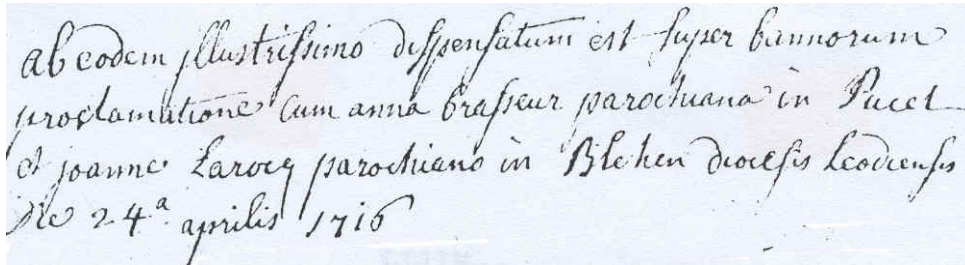 ab eodem jllustrissimo dispensatum est super bannorum
proclamatione cum anna brasseur parochiana in Pucet
et joanne Larocq parochiano in Blehen diocesis Leodiensis
Die 24ª aprilis 1716